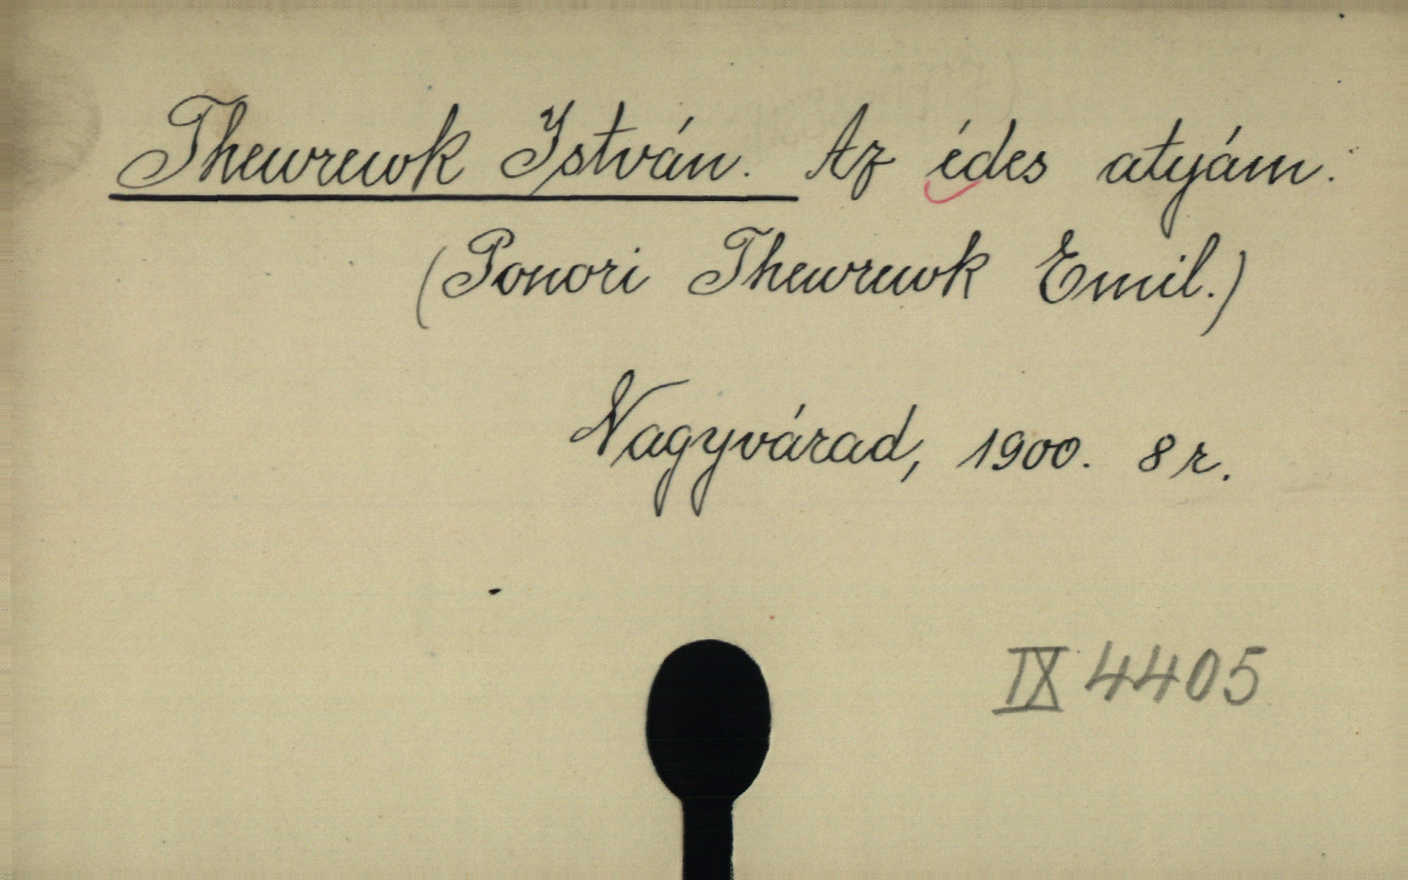 Thewrewk István. Az édes atyám.
(Ponori Thewrewk Emil.)
Nagyvárad, 1900. 8r.
IX 4405